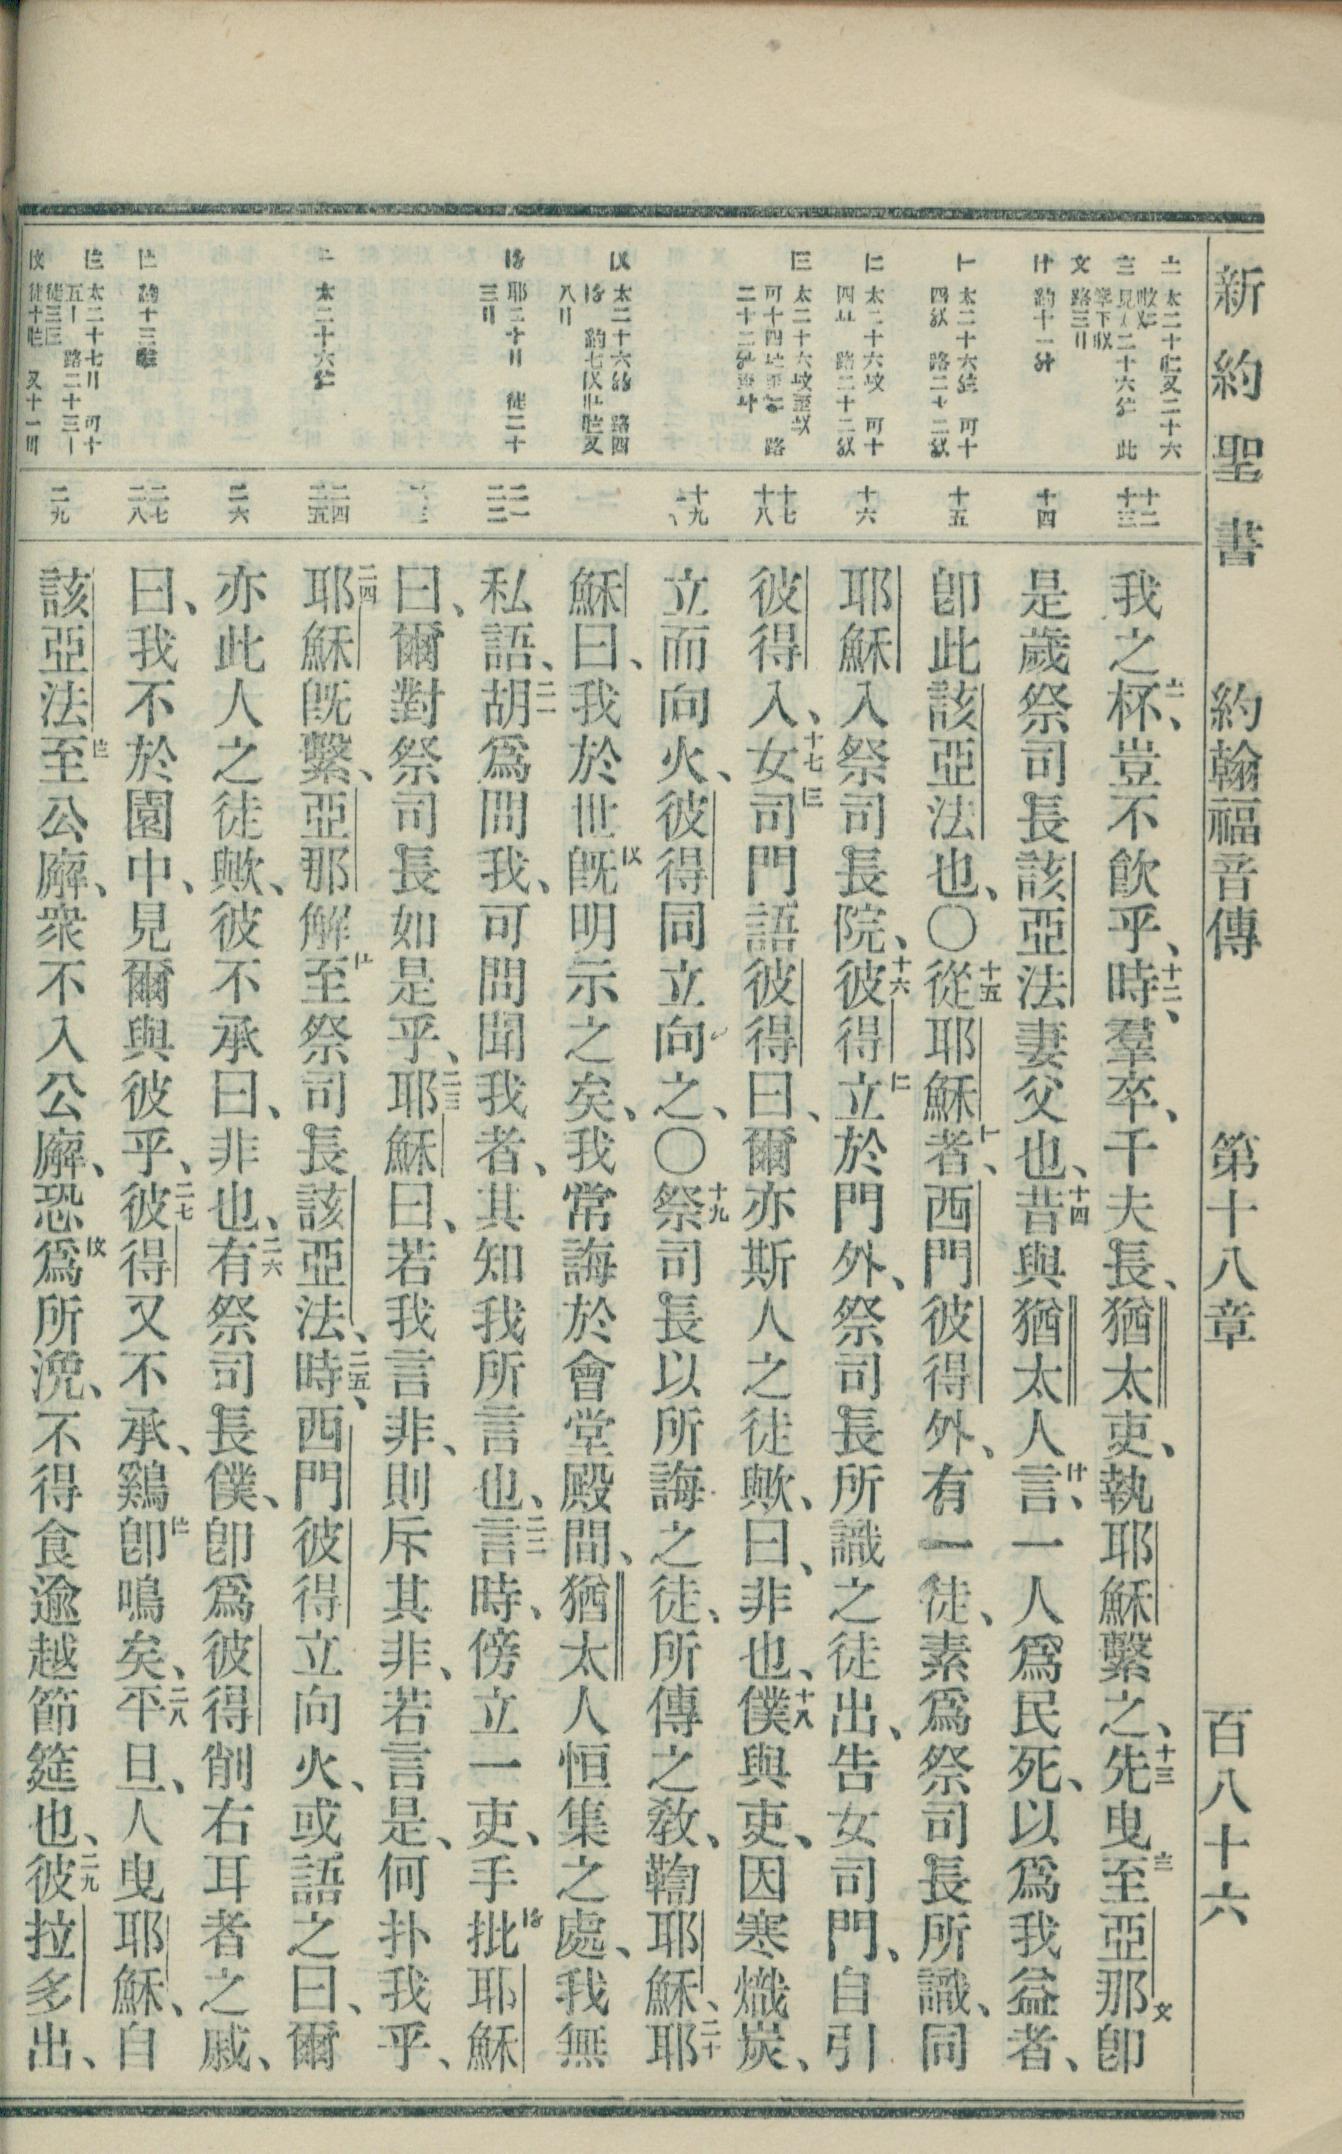 新約聖書 約翰福音傳 第十八章 百八十六
十二
十三
十四
十五
十六
十七
十八
十九
二一
二二
二四
二五
二六
二七
二八
二九
我之杯、豈不飮乎、十二時、羣卒、千夫長、猶太吏、執耶穌繫之、十三先曳至亞那卽
是歲祭司長該亞法妻父也、十四昔與猶太人言、一人爲民死、以爲我益者、
卽此該亞法也、〇十五從耶穌者、西門彼得外、有一徒、素爲祭司長所識、同
耶穌入祭司長院、十六彼得立於門外、祭司長所識之徒出、告女司門、自引
彼得入、十七女司門語彼得曰、爾亦斯人之徒歟、曰、非也、十八僕與吏、因寒熾炭、
立而向火、彼得同立向之、〇十九祭司長以所誨之徒、所傳之敎、鞫耶穌、二十耶
穌曰、我於世旣明示之矣、我常誨於會堂殿間、猶太人恒集之處、我無
私語、二一胡爲問我、可問聞我者、其知我所言也、二二言時、傍立一吏、手批耶穌
曰、爾對祭司長如是乎、二三耶穌曰、若我言非、則斥其非、若言是、何扑我乎、
二四耶穌旣繫、亞那解至祭司長該亞法、二五時、西門彼得立向火、或語之曰、爾
亦此人之徒歟、彼不承曰、非也、二六有祭司長僕、卽爲彼得削右耳者之戚、
曰、我不於園中、見爾與彼乎、二七彼得又不承、鷄卽鳴矣、二八平旦、人曳耶穌、自
該亞法至公廨、衆不入公廨、恐爲所浼、不得食逾越節筵也、二九彼拉多出、